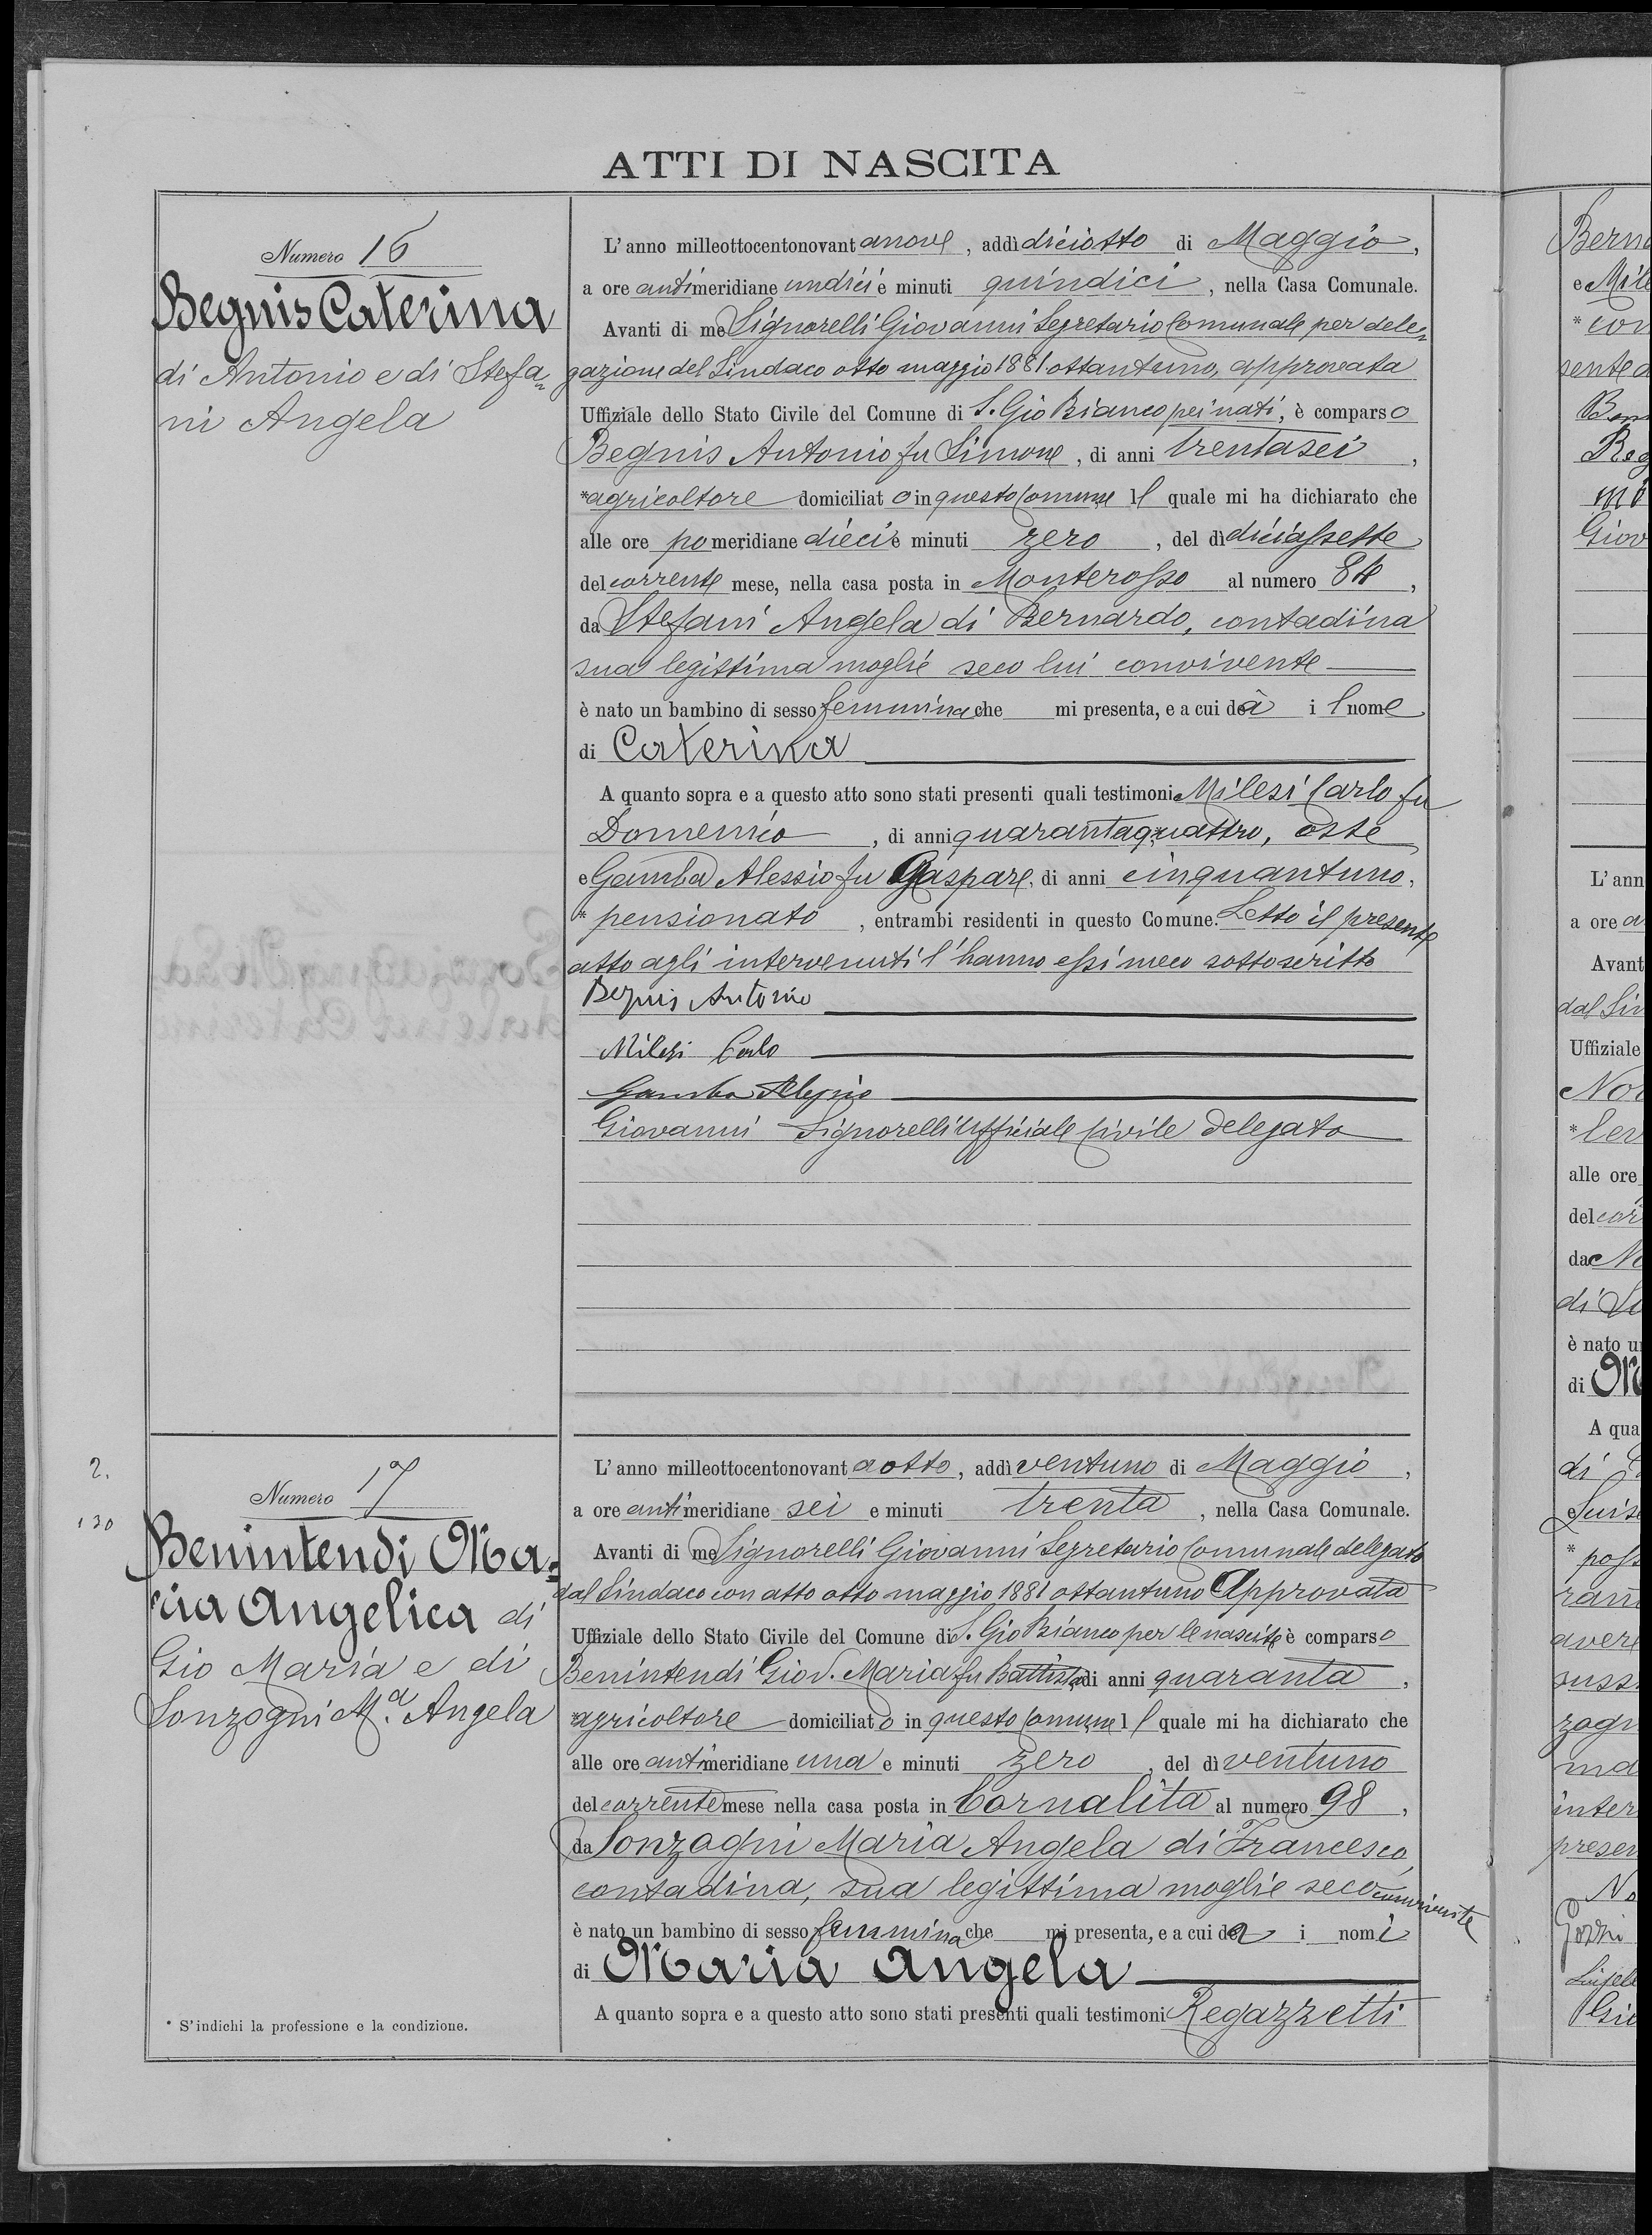 ATTI DI NASCITA
Numero 16
Begnis Caterina
di Antonio e di Stefa=
ni Angela
L'anno milleottocentonovantanove, addì diciotto di Maggio,
a ore antimeridiane undici e minuti quindici, nella Casa Comunale.
Avanti di me Signorelli Giovanni Segretario Comunale per dele=
gazione del Sindaco otto maggio 1881 ottantuno, approvata
Uffiziale dello Stato Civile del Comune di S. Gio Bianco pei nati, è comparso
Begnis Antonio fu Simone, di anni trentasei,
*agricoltore domiciliato in questo Comune il quale mi ha dichiarato che
alle ore pomeridiane dieci e minuti zero, del dì diciassette
del corrente mese, nella casa posta in Monterosso al numero 84,
da Stefani Angela di Bernardo, contadina
sua legittima moglie seco lui convivente
è nato un bambino di sesso femmina che mi presenta, e a cui dà il nome
di Caterina
A quanto sopra e a questo atto sono stati presenti quali testimoni Milesi Carlo fu
Domenico, di anni quarantaquattro, oste
e Gamba Alessio fu Gaspare, di anni cinquantuno,
* pensionato, entrambi residenti in questo Comune. Letto il presente
atto agli intervenuti l'hanno essi meco sottoscritto
Begnis Antonio
Milesi Carlo
Gamba Alessio
Giovanni Signorelli Ufficiale Civile delegato
2.
130
Numero 17
Benintendi Ma=
ria Angelica di
Gio Maria e di
Sonzogni Mª. Angela
L'anno milleottocentonovantaotto, addì ventuno di Maggio,
a ore antimeridiane sei e minuti trenta, nella Casa Comunale.
Avanti di me Signorelli Giovanni Segretario Comunale delegato
dal Sindaco con atto otto maggio 1881 ottantuno Approvata
Uffiziale dello Stato Civile del Comune di S. Gio Bianco per le nascite è comparso
Benintendi Giov. Maria fu Battista, di anni quaranta,
*agricoltore domiciliato in questo Comune il quale mi ha dichiarato che
alle ore antimeridiane una e minuti zero, del dì ventuno
del corrente mese nella casa posta in Cornalita al numero 98,
da Sonzogni Maria Angela di Francesco,
contadina, sua legittima moglie seco convivente
è nato un bambino di sesso femmina che mi presenta, e a cui da i nomi
di Maria Angela
A quanto sopra e a questo atto sono stati presenti quali testimoni Regazzetti
* S'indichi la professione e la condizione.